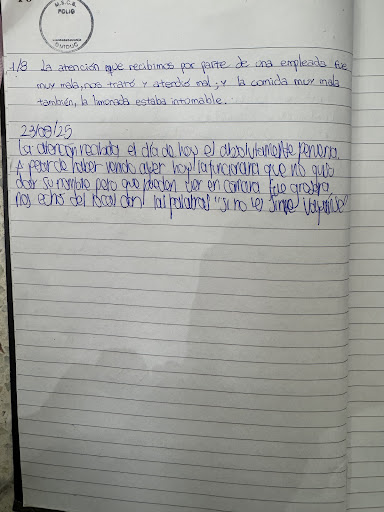 M.S.C.B.
FOLIO
1/8 La atención que recibimos por parte de una empleada fue
muy mala, nos trató y atendió mal, y la comida muy mala
también, la limonada estaba intomable.
23/08/25
La atención recibida el día de hoy es absolutamente penosa.
A pesar de haber venido ayer hoy la funcionaria que no quiso
dar su nombre pero que pueden ver en cámara fue grosera,
nos echó del local con las palabras "si no les sirve váyanse"